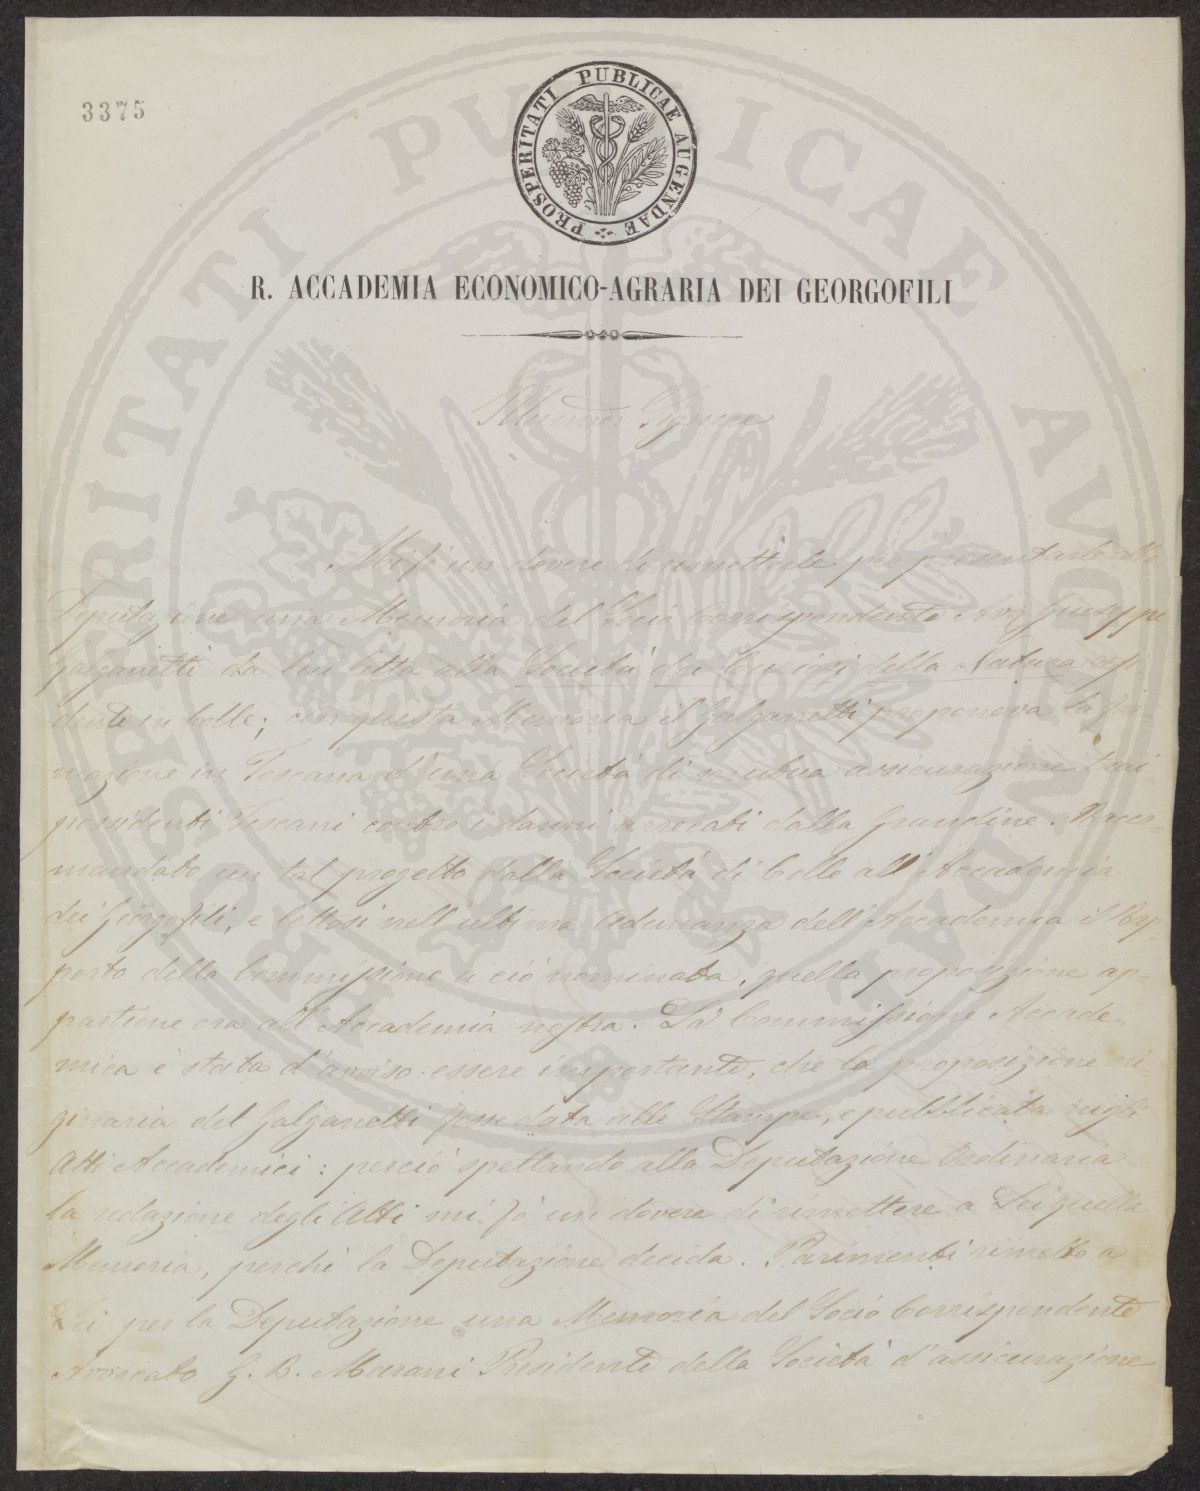 3375
PROSPERITATI PUBLICAE AUGENDAE
R. ACCADEMIA ECONOMICO-AGRARIA DEI GEORGOFILI
Illmo. Signore
Mi fò un dovere di rimetterle per presentarle alla
Deputazione una Memoria del Socio Corrispondente Avv. Giuseppe
Galganetti da lui letta alla Società dei Curiosi della Natura resi
dente in Colle; con questa Memoria il Galganetti proponeva la for-
mazione in Toscana d'una Società di mutua assicurazione trai
possidenti Toscani contro i danni arrecati dalla Grandine. Racco-
mandato un tal progetto dalla Società di Colle all'Accademia
dei Georgofili, e lettosi nell'ultima Adunanza dell'Accademia il Rap-
porto della Commissione a ciò nominata, quella proposizione ap-
partiene ora all'Accademia nostra. La Commissione Accade-
mica è stata d'avviso essere importante, che la proposizione ori-
ginaria del Galganetti fosse data alle Stampe, e pubblicata negli
Atti Accademici: perciò spettando alla Deputazione Ordinaria
la redazione degli Atti mi fò un dovere di rimettere a Lei quella
Memoria, perchè la Deputazione decida. Parimenti rimetto a
Lei per la Deputazione una Memoria del Socio Corrispondente
Avvocato G. B. Marani Presidente della Società d'assicurazione
PROSPERITATI PUBLICAE AUGENDAE